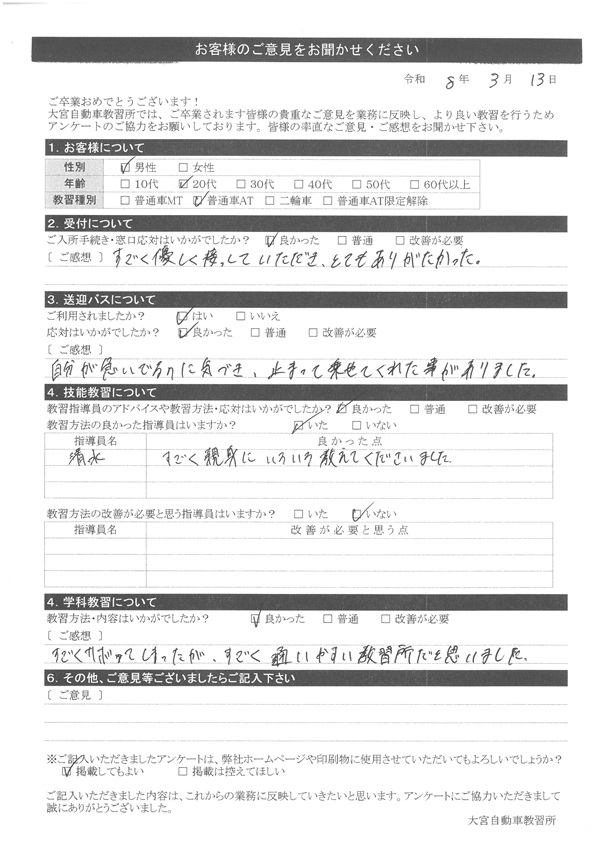 お客様のご意見をお聞かせください
令和 8年 3月 13日
ご卒業おめでとうございます！
大宮自動車教習所では、ご卒業されます皆様の貴重なご意見を業務に反映し、より良い教習を行うため
アンケートのご協力をお願いしております。皆様の率直なご意見・ご感想をお聞かせ下さい。
1. お客様について
性別 ☑男性 □女性
年齢 □10代 ☑20代 □30代 □40代 □50代 □60代以上
教習種別 □普通車MT ☑普通車AT □二輪車 □普通車AT限定解除
2. 受付について
ご入所手続き・窓口応対はいかがでしたか？ ☑良かった □普通 □改善が必要
〔 ご感想 〕 すごく優しく接していただき、とてもありがたかった。
3. 送迎バスについて
ご利用されましたか？ ☑はい □いいえ
応対はいかがでしたか？ ☑良かった □普通 □改善が必要
〔 ご感想 〕
自分が急いで方りに気づき、止まって乗せてくれた事がありました。
4. 技能教習について
教習指導員のアドバイスや教習方法・応対はいかがでしたか？ ☑良かった □普通 □改善が必要
教習方法の良かった指導員はいますか？ ☑いた □いない
指導員名 良かった点
清水 すごく親身にいろいろ教えてくださいました
教習方法の改善が必要と思う指導員はいますか？ □いた ☑いない
指導員名 改善が必要と思う点
4. 学科教習について
教習方法・内容はいかがでしたか？ ☑良かった □普通 □改善が必要
〔 ご感想 〕
すごくサボってしまったが、すごく通いやすい教習所だと思いました。
6. その他、ご意見等ございましたらご記入下さい
〔 ご意見 〕
※ご記入いただきましたアンケートは、弊社ホームページや印刷物に使用させていただいてもよろしいでしょうか？
☑掲載してもよい □掲載は控えてほしい
ご記入いただきました内容は、これからの業務に反映していきたいと思います。アンケートにご協力いただきまして
誠にありがとうございました。
大宮自動車教習所